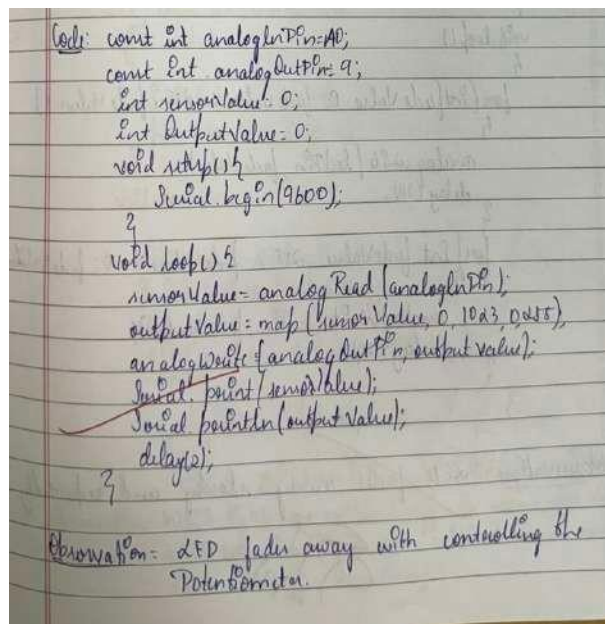 Code: const int analogInPin=A0;
const int analogOutPin=9;
int sensorValue=0;
int OutputValue=0;
void setup(){
Serial.begin(9600);
}
void loop(){
sensorValue=analogRead(analogInPin);
outputValue=map(sensorValue,0,1023,0,255);
analogWrite(analogOutPin,output value);
Serial.print(sensorValue);
Serial.println(output value);
delay(2);
}
Observation= LED fades away with controlling the
Potentiometer.